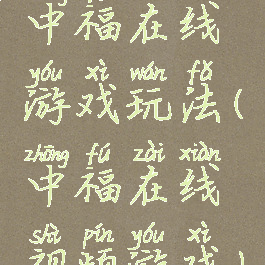 中福在线
yóu xì wán fǎ
游戏玩法(
zhōng fú zài xiàn
中福在线
shì pín yóu xì
视频游戏)